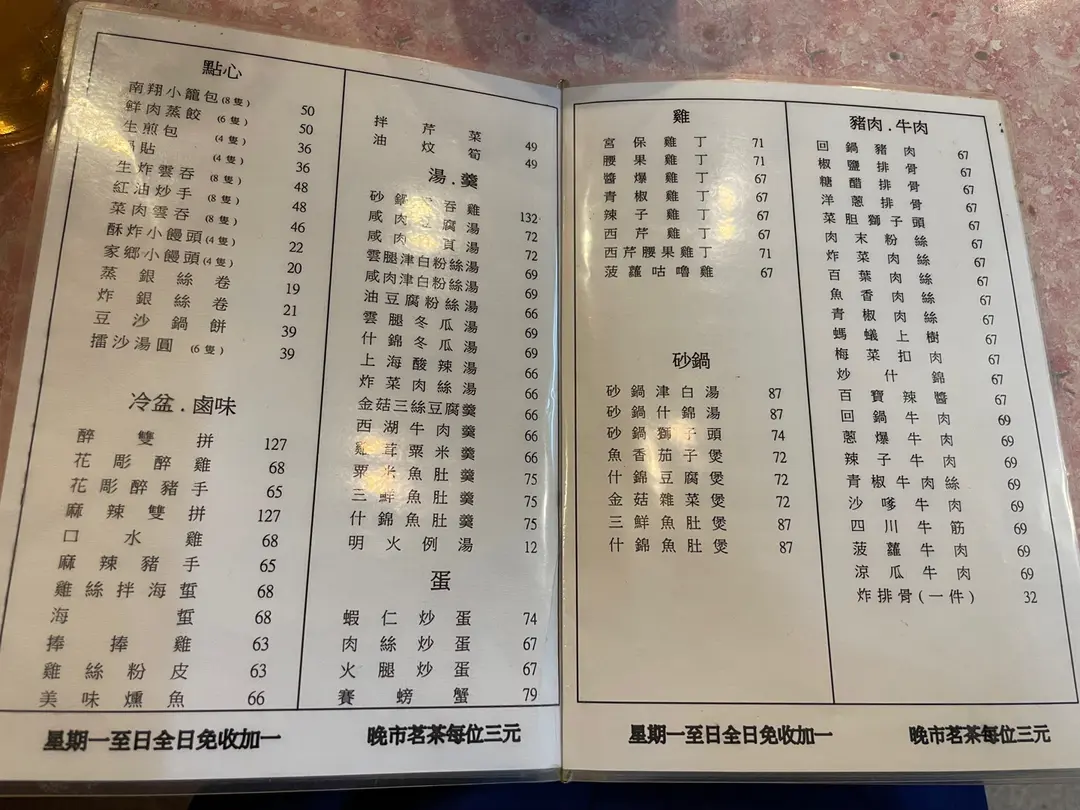 點心
南翔小籠包(8隻) 50
鮮肉蒸餃(6隻) 50
生煎包(4隻) 36
貼(4隻) 36
生炸雲吞(8隻) 48
紅油炒手(8隻) 48
菜肉雲吞(8隻) 46
酥炸小饅頭(4隻) 22
家鄉小饅頭(4隻) 20
蒸銀絲卷 19
炸銀絲卷 21
豆沙鍋餅 39
擂沙湯圓(6隻) 39
冷盆.鹵味
醉雙拼 127
花彫醉雞 68
花彫醉豬手 65
麻辣雙拼 127
口水雞 68
麻辣豬手 65
雞絲拌海蜇 68
海蜇 68
捧捧雞 63
雞絲粉皮 63
美味燻魚 66
拌芹菜 49
油炆筍 49
湯.羹
砂鍋吞雞 132
咸肉豆腐湯 72
咸肉頁湯 72
雲腿津白粉絲湯 69
咸肉津白粉絲湯 69
油豆腐粉絲湯 66
雲腿冬瓜湯 69
什錦冬瓜湯 69
上海酸辣湯 66
炸菜肉絲湯 66
金菇三絲豆腐羹 66
西湖牛肉羹 66
雞茸粟米羹 66
粟米魚肚羹 75
三鮮魚肚羹 75
什錦魚肚羹 75
明火例湯 12
蛋
蝦仁炒蛋 74
肉絲炒蛋 67
火腿炒蛋 67
賽螃蟹 79
星期一至日全日免收加一 晚市茗茶每位三元
雞
宮保雞丁 71
腰果雞丁 71
醬爆雞丁 67
青椒雞丁 67
辣子雞丁 67
西芹雞丁 67
西芹腰果雞丁 71
菠蘿咕嚕雞 67
砂鍋
砂鍋津白湯 87
砂鍋什錦湯 87
砂鍋獅子頭 74
魚香茄子煲 72
什錦豆腐煲 72
金菇雜菜煲 72
三鮮魚肚煲 87
什錦魚肚煲 87
豬肉.牛肉
回鍋豬肉 67
椒鹽排骨 67
糖醋排骨 67
洋蔥排骨 67
菜胆獅子頭 67
肉末粉絲 67
炸菜肉絲 67
百葉肉絲 67
魚香肉絲 67
青椒肉絲 67
螞蟻上樹 67
梅菜扣肉 67
炒什錦 67
百寶辣醬 67
回鍋牛肉 69
蔥爆牛肉 69
辣子牛肉 69
青椒牛肉絲 69
沙嗲牛肉 69
四川牛筋 69
菠蘿牛肉 69
涼瓜牛肉 69
炸排骨(一件) 32
星期一至日全日免收加一 晚市茗茶每位三元